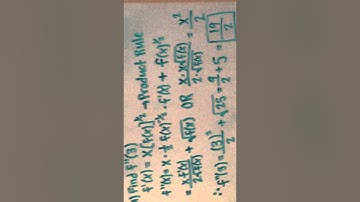 a) Find f"(3)
f'(x) = x[f(x)]^½ → Product Rule
f"(x) = x · ½ f(x)^-½ · f'(x) + f(x)^½
= x f'(x) / 2√f(x) + √f(x) OR x · x√f(x) / 2 · √f(x) = x² / 2
∴ f"(3) = (3)² / 2 + √25 = 9/2 + 5 = 19/2